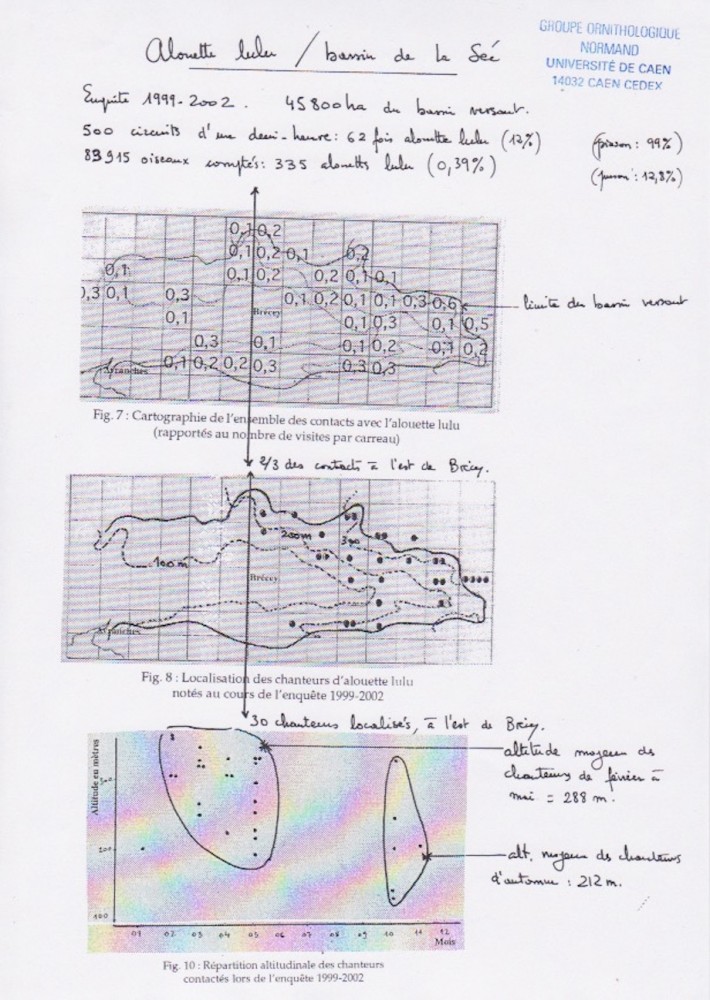 Alouette lulu / bassin de la Sée
GROUPE ORNITHOLOGIQUE
NORMAND
UNIVERSITÉ DE CAEN
14032 CAEN CEDEX
Enquête 1999-2002. 45800ha du bassin versant.
500 circuits d'une demi-heure: 62 fois alouette lulu (12%) (pinson: 99%)
83915 oiseaux comptés: 335 alouettes lulu (0,39%) (pinson: 12,8%)
0,1 0,2
0,1 0,2 0,1 0,2
0,1 0,1 0,2 0,2 0,1 0,1
0,3 0,1 0,3 0,1 0,2 0,1 0,1 0,3 0,6 limite du bassin versant
0,1 Brécey 0,1 0,3 0,1 0,5
0,3 0,1 0,1 0,2 0,1 0,2
Avranches 0,1 0,2 0,2 0,3 0,3 0,3
Fig. 7 : Cartographie de l'ensemble des contacts avec l'alouette lulu
(rapportés au nombre de visites par carreau)
2/3 des contacts à l'est de Brécey.
200m 300
100m
Brécey
Avranches
Fig. 8 : Localisation des chanteurs d'alouette lulu
notés au cours de l'enquête 1999-2002
30 chanteurs localisés, à l'est de Brécey.
Altitude en mètres
altitude moyenne des
chanteurs de février à
mai = 288 m.
300
200
alt. moyenne des chanteurs
d'automne : 212 m.
100
01 02 03 04 05 06 07 08 09 10 11 12
Mois
Fig. 10 : Répartition altitudinale des chanteurs
contactés lors de l'enquête 1999-2002